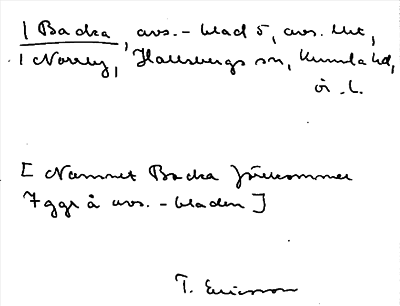 1 Backa, avs.-blad 5, avs. litt,
i Norrby, Hallsbergs sn, Kumla hd,
ör. l.
[ Namnet Backa förekommer
7 ggr å avs.-bladen ]
T. Ericsson